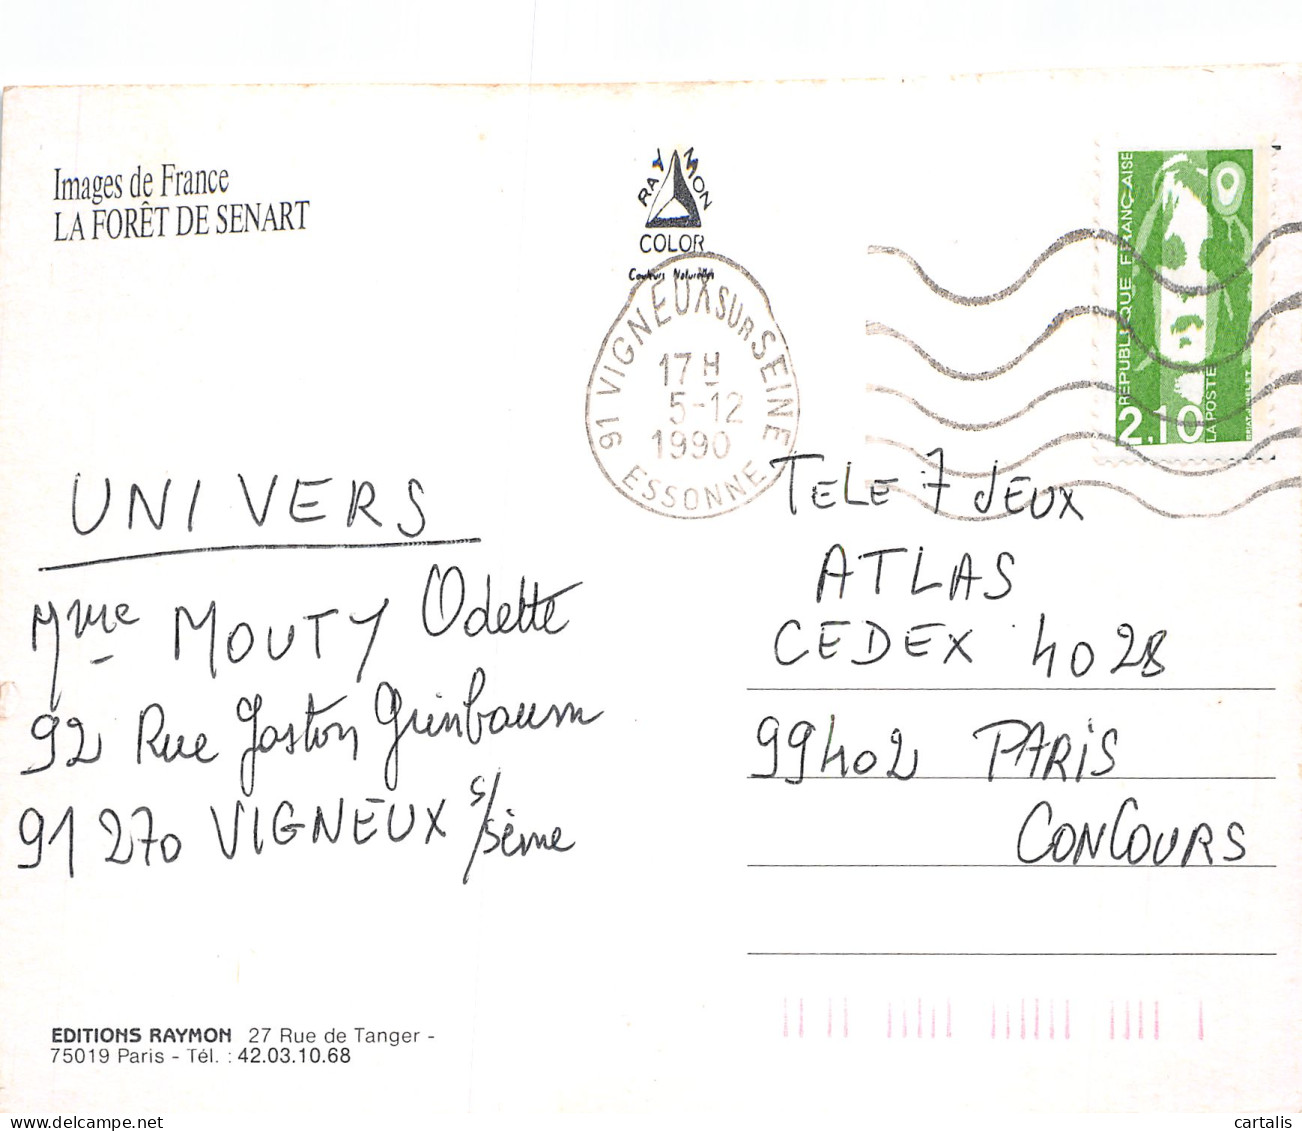 Images de France
LA FORÊT DE SENART
RAYMON
COLOR
Couleurs Naturelles
91 VIGNEUX SUR SEINE
17H
5-12
1990
ESSONNE
REPUBLIQUE FRANÇAISE
2,10
LA POSTE
UNIVERS
Mme MOUTY Odette
92 Rue Gaston Grinbaum
91 270 VIGNEUX s/seine
TELE 7 JEUX
ATLAS
CEDEX 4028
99402 PARIS
CONCOURS
EDITIONS RAYMON 27 Rue de Tanger -
75019 Paris - Tél. : 42.03.10.68
delcampe.net
cartalis